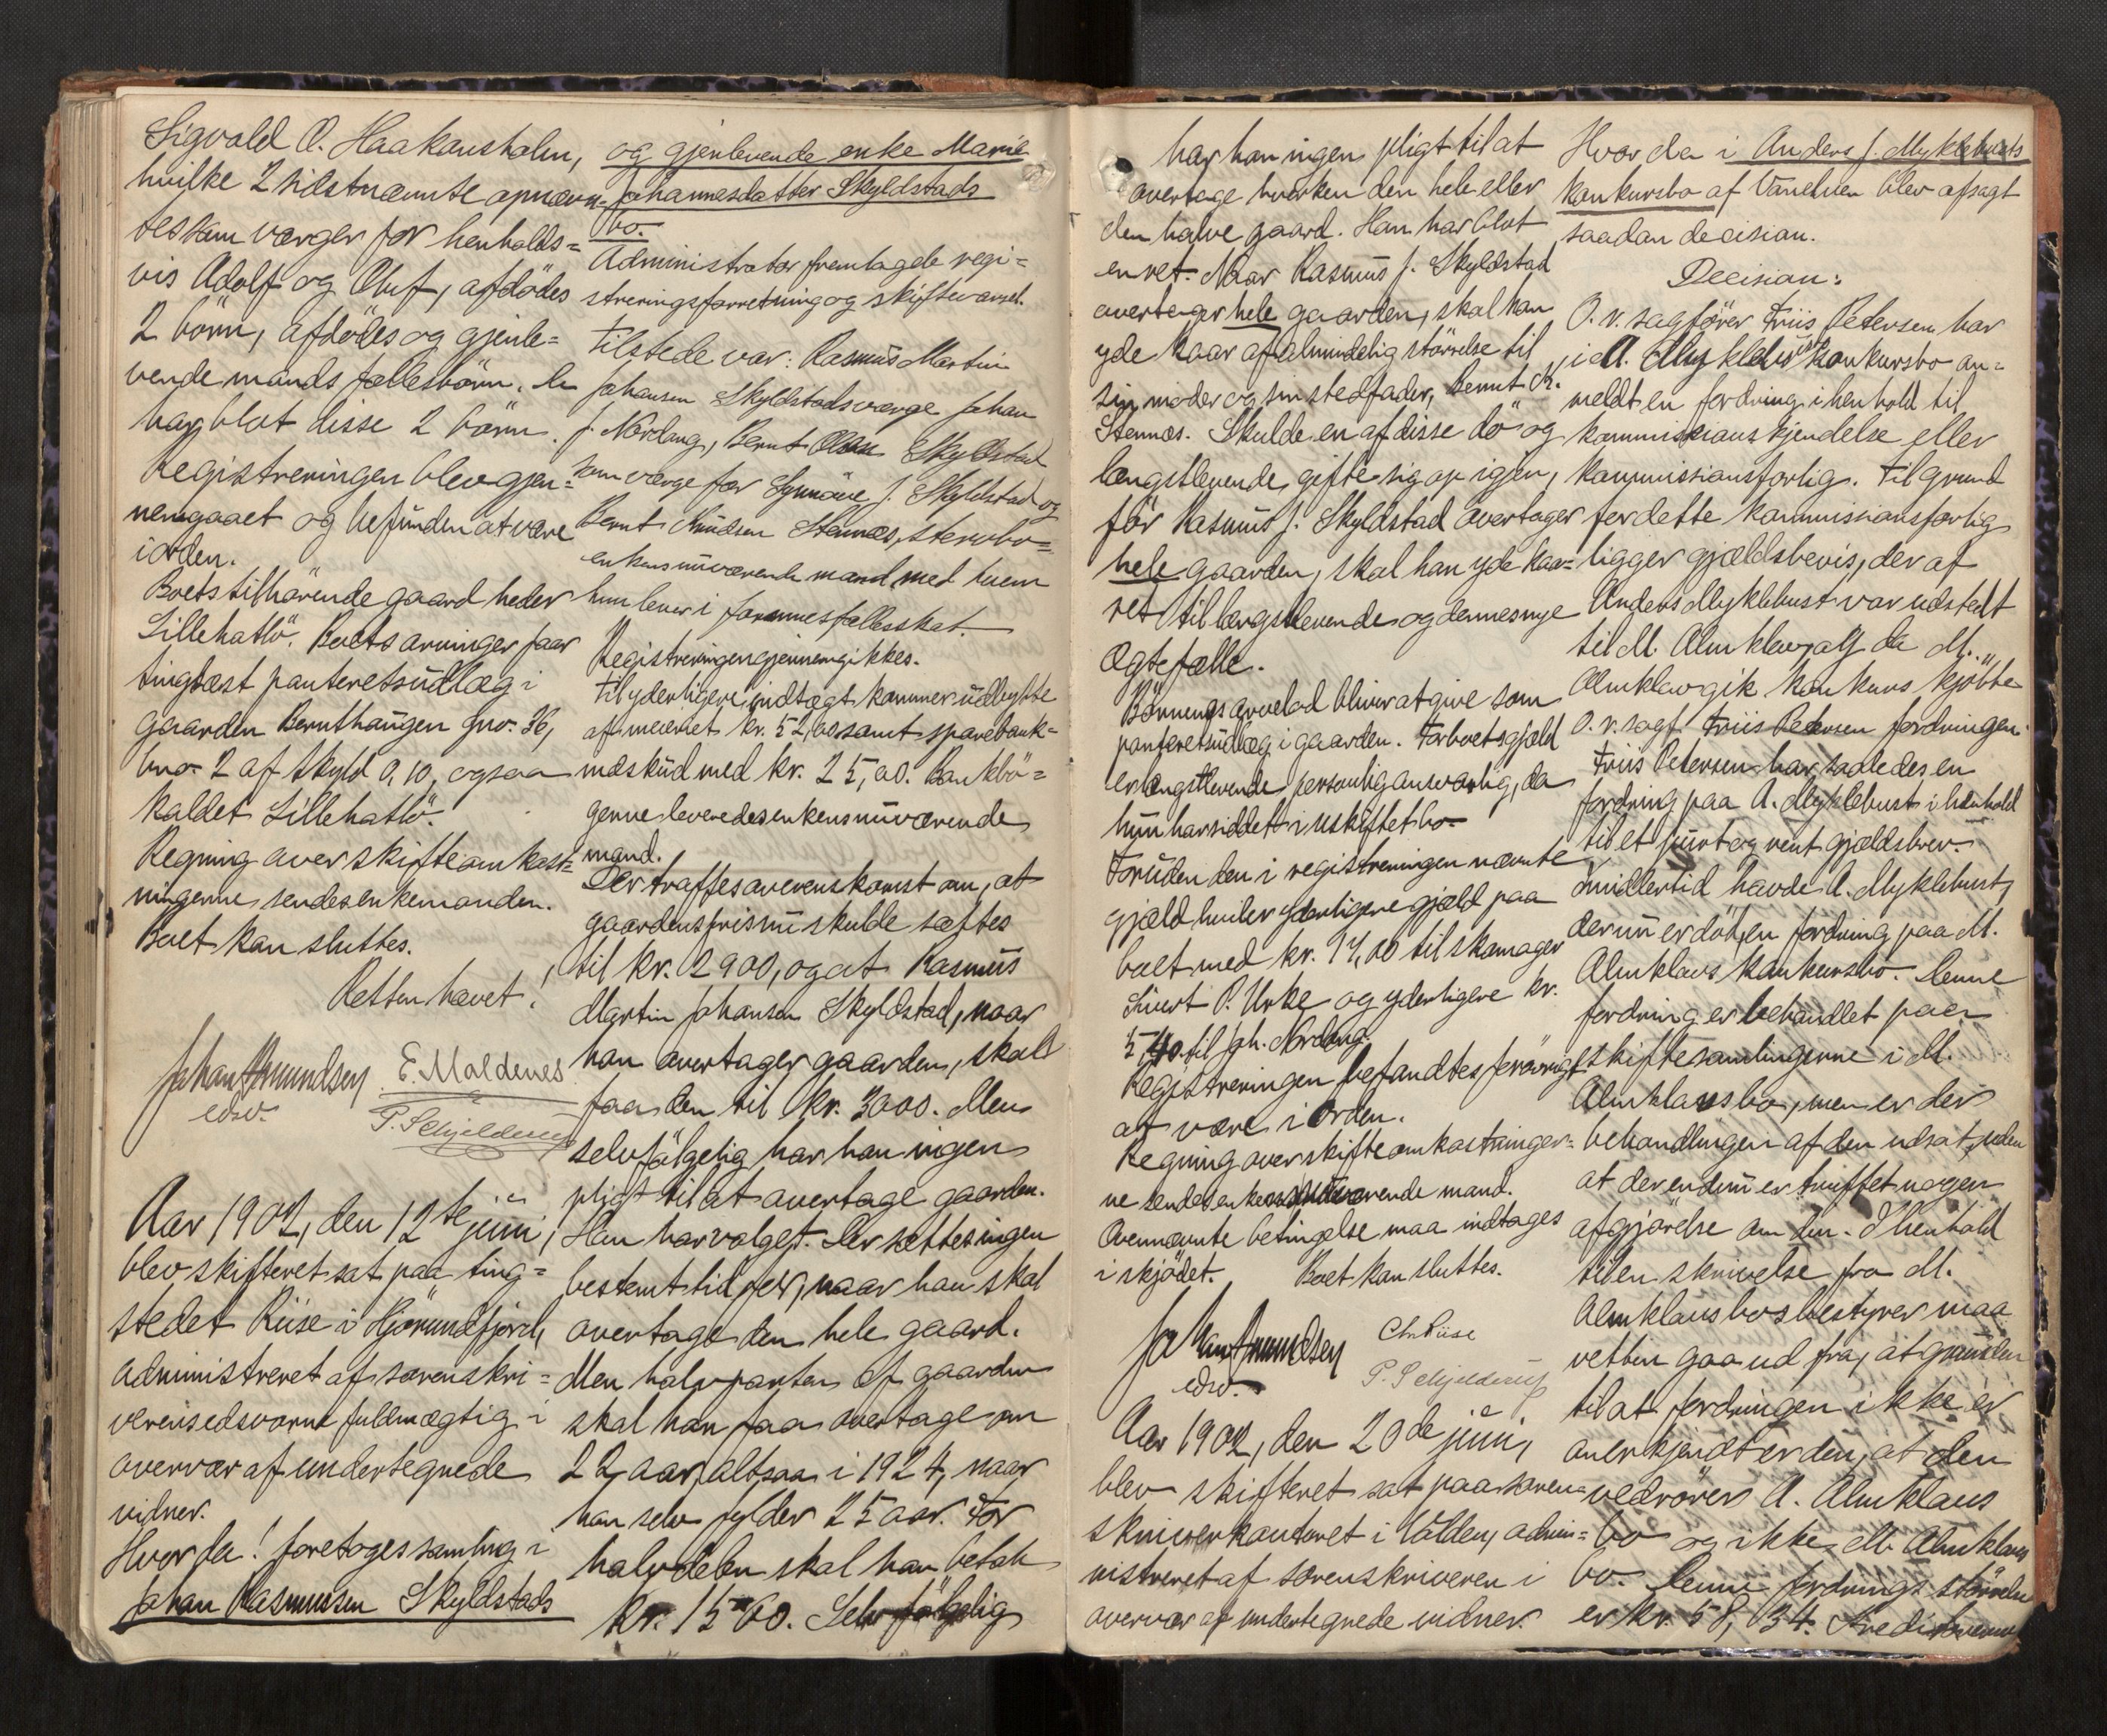 Sigvald O. Haakonsholm,
hvilke 2 sidstnævnte opnævn-
tes som værger for henholds=
vis Adolf og Oluf, afdödes
2 börn, afdödes og gjenle=
vende mands fællesbörn. De
har blot disse 2 börn.
Registreringen blev gjen=
nemgaaet og befunden at være
iorden.
Boets tilhörende gaard heder
Lillehatlö. Boets arvinger faar
tinglæst panteretsudlæg i
gaarden Bernthaugen gno. 36,
bno. 2 af skyld 0,10, ogsaa
kaldet Lillehatlö.
Regning over skifteomkost=
ningerne sendes enkemanden.
Boet kan sluttes.
Retten hævet!
Johan Amundsen E. Maldenes
edsv.
P. Schjelderup
Aar 1902, den 12te juni,
blev skifteret sat paa ting=
stedet Riise i Hjörundfjord,
administreret af sorenskri=
verens edsvorne fuldmægtig i
overvær af undertegnede
vidner.
Hvor da! foretages samling i
Johan Rasmussen Skyldstads
og gjenlevende enke Marie
Johannesdatter Skyldstads
bo.
Administrator fremlagde regi=
streringsforretning og skiftevarsel.
Tilstede var: Rasmus Martin
Johansen Skyldstads værge Johan
J. Nordang, Bernt Olsen Skyldstad
som værge for Synnöve J. Skyldstad og
Bernt Knudsen Stennes, stervbo=
enkens nuværende mand med hvem
hun lever i formuesfællesskab.
Registreringen gjennemgikkes.
Til yderligere indtægt kommer udbytte
af meieriet kr. 52,00 samt sparebank=
indskud med kr. 25,00. Bankbö=
gerne leveredes enkens nuværende
mand.
Der traffes overenskomst om, at
gaardens pris nu skulde sættes
til kr. 2900, og at Rasmus
Martin Johansen Skyldstad, naar
han overtager gaarden, skal
faa den til kr. 3000. Men
selvfölgelig har han ingen
pligt til at overtage gaarden.
Han har valget. Der sættes ingen
bestemt tid for, naar han skal
overtage den hele gaard.
Men halvparten af gaarden
skal han faa overtage om
22 aar, altsaa i 1924, naar
han selv fylder 25 aar. For
halvdelen skal han betale
kr. 1500. Selvfölgelig
har han ingen pligt til at
overtage hverken den hele eller
den halve gaard. Han har blot
en ret. Naar Rasmus J. Skyldstad
overtager hele gaarden, skal han
yde kaar af almindelig störrelse til
sin moder og sin stedfader, Bernt K.
Stennes. Skulde en af disse dö og
længstlevende gifte sig op igjen,
för Rasmus J. Skyldstad overtager
hele gaarden, skal han yde kaa=
ret til længstlevende og dennes nye
Ægtefælle.
Börnenes arvelod bliver at give som
panteretsudlæg i gaarden. For boets gjæld
er længstlevende personlig ansvarlig, da
hun har siddet i uskiftet bo.
Foruden den i registreringen nævnte
gjæld hviler yderligere gjæld paa
boet med kr. 14,00 til skomager
Sivert P. Urke og yderligere kr.
5,40 til Joh. Nordang.
Registreringen befandtes forövrigt
at være i Orden.
Regning over skifteomkostninger=
ne sendes enkens nuværende mand.
Ovennævnte betingelse maa indtages
i skjödet. Boet kan sluttes.
Johan Amundsen Chr Riise
edsv. P. Schjelderup
Aar 1902, den 20de juni,
blev skifteret sat paa soren=
skriverkontoret i Volden, admin=
nistreret af sorenskriveren i
overvær af undertegnede vidner.
Hvor da i Anders J. Myklebusts
konkursbo af Vanelven blev afsagt
saadan decision.
Decision:
O.r. sagförer Friis Petersen har
i A. Myklebusts konkursbo an=
meldt en fordring i henhold til
kommissions kjendelse eller
kommissionsforlig. Til grund
for dette kommissionsforlig
ligger gjældsbevis, der af
Anders Myklebust var udstedt
til M. Almklov, og da M.
Almklov gik konkurs kjöbte
O.r. sagf. Friis Petersen fordringen.
Friis Petersen har saaledes en
fordring paa A. Myklebust i henhold
til et purt og rent gjældsbrev.
Imidlertid havde A. Myklebust,
der nu er död, en fordring paa M.
Almklovs konkursbo. Denne
fordring er behandlet paa
skiftesamlingerne i M.
Almklovs bo, men er der
behandlingen af den udsat, uden
at der endnu er truffet nogen
afgjörelse om den. I henhold
til en skrivelse fra M.
Almklovs bos bestyrer maa
retten gaa ud fra, at grunden
til at fordringen ikke er
anerkjendt er den, at den
vedrörer A. Almklovs
bo og ikke M. Almklovs
bo. Denne fordrings störrelse
er kr. 58,34.